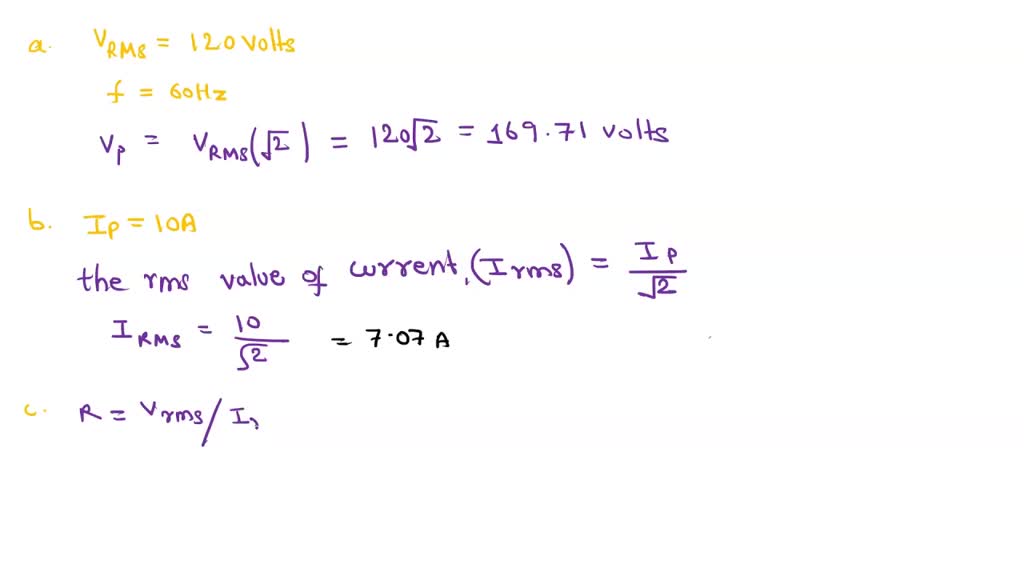 a. VRMS = 120 volts
f = 60Hz
Vp = VRMS(√2) = 120√2 = 169.71 volts
b. Ip = 10A
the rms value of current, (Irms) = Ip/√2
IRMS = 10/√2 = 7.07 A
c. R = Vrms/I